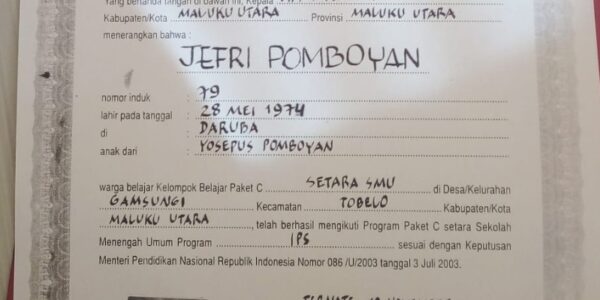 Yang bertanda tangan di bawah ini, Kepala
Kabupaten/Kota MALUKU UTARA Provinsi MALUKU UTARA
menerangkan bahwa :
JEFRI POMBOYAN
nomor induk : 79
lahir pada tanggal : 28 MEI 1974
di : DARUBA
anak dari : YOSEPUS POMBOYAN
warga belajar Kelompok Belajar Paket C SETARA SMU di Desa/Kelurahan
GAMSUNGI Kecamatan TOBELO Kabupaten/Kota
MALUKU UTARA, telah berhasil mengikuti Program Paket C setara Sekolah
Menengah Umum Program IPS sesuai dengan Keputusan
Menteri Pendidikan Nasional Republik Indonesia Nomor 086 /U/2003 tanggal 3 Juli 2003.